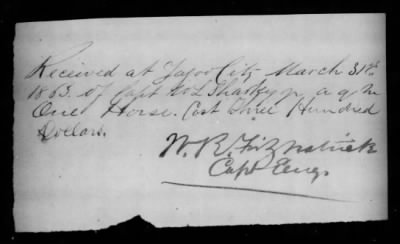 Received at Yazoo City March 31st
1863. of Capt W L Sharkey a q m
One Horse. Cost Three Hundred
Dollars.
W. R. Fitzpatrick
Capt Engs